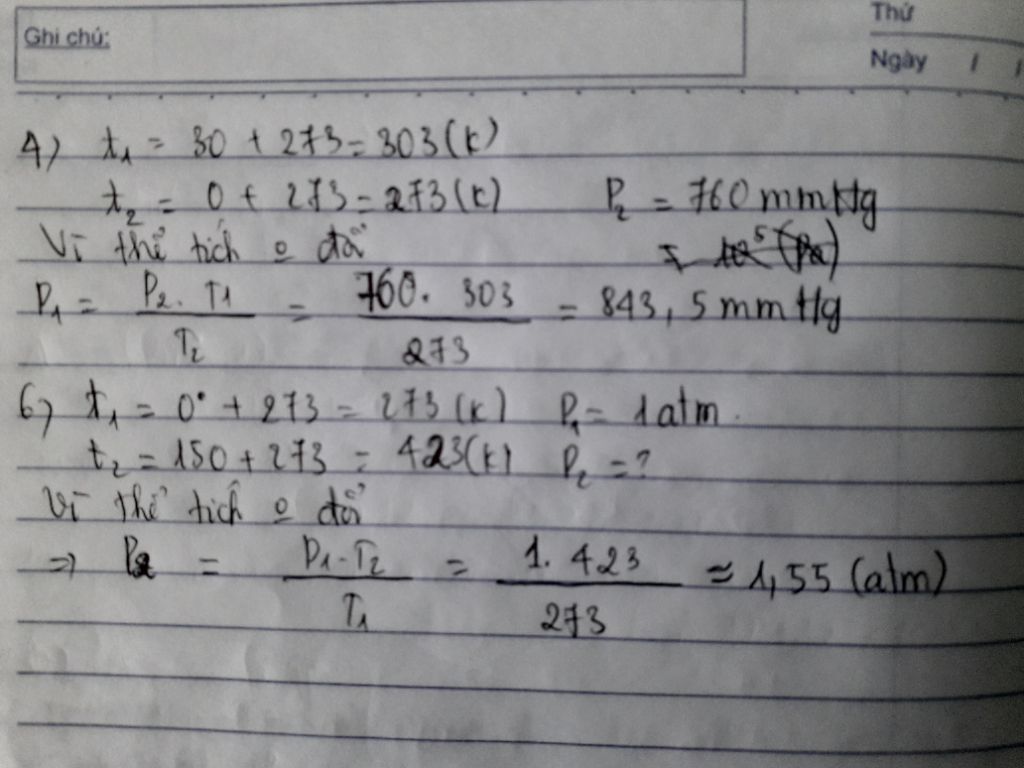 Ghi chú:
Thứ
Ngày / /
4) t₁ = 30 + 273 = 303 (K)
t₂ = 0 + 273 = 273 (K) P₂ = 760 mmHg
Vì thể tích o đổi
P₁ = P₂ . T₁ / T₂ = 760 . 303 / 273 = 843,5 mmHg
6) t₁ = 0° + 273 = 273 (K) P₁ = 1 atm.
t₂ = 150 + 273 = 423 (K) P₂ = ?
Vì thể tích o đổi
=> P₂ = P₁ . T₂ / T₁ = 1 . 423 / 273 ≈ 1,55 (atm)